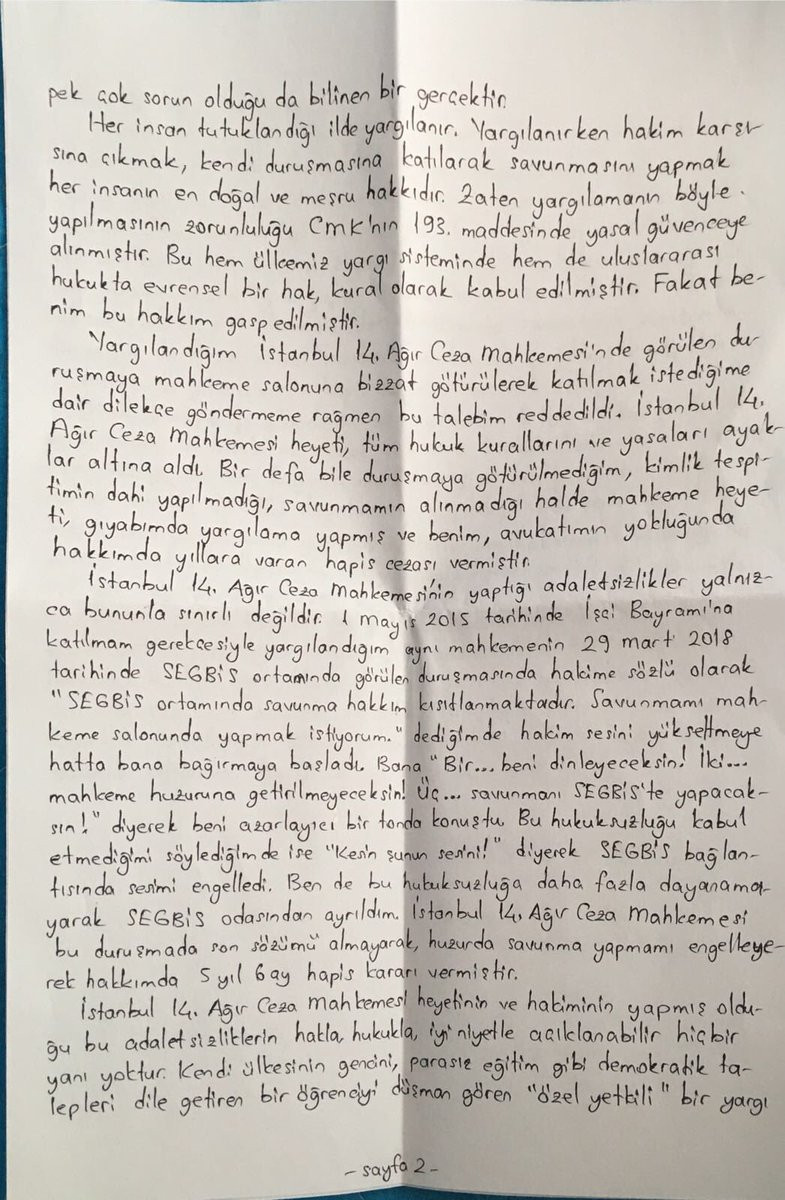 pek çok sorun olduğu da bilinen bir gerçektir.
Her insan tutuklandığı ilde yargılanır. Yargılanırken hakim karşı-
sına çıkmak, kendi duruşmasına katılarak savunmasını yapmak
her insanın en doğal ve meşru hakkıdır. Zaten yargılamanın böyle
yapılmasının zorunluluğu CMK'nın 193. maddesinde yasal güvenceye
alınmıştır. Bu hem ülkemiz yargı sisteminde hem de uluslararası
hukukta evrensel bir hak, kural olarak kabul edilmiştir. Fakat be-
nim bu hakkım gasp edilmiştir.
Yargılandığım İstanbul 14. Ağır Ceza Mahkemesi'nde görülen du-
ruşmaya mahkeme salonuna bizzat götürülerek katılmak istediğime
dair dilekçe göndermeme rağmen bu talebim reddedildi. İstanbul 14.
Ağır Ceza Mahkemesi heyeti, tüm hukuk kurallarını ve yasaları ayak-
lar altına aldı. Bir defa bile duruşmaya götürülmediğim, kimlik tespi-
timin dahi yapılmadığı, savunmamın alınmadığı halde mahkeme heye-
ti, gıyabımda yargılama yapmış ve benim, avukatımın yokluğunda
hakkımda yıllara varan hapis cezası vermiştir.
İstanbul 14. Ağır Ceza Mahkemesi'nin yaptığı adaletsizlikler yalnız-
ca bununla sınırlı değildir. 1 mayıs 2015 tarihinde İşçi Bayramı'na
katılmam gerekçesiyle yargılandığım aynı mahkemenin 29 mart 2018
tarihinde SEGBİS ortamında görülen duruşmasında hakime sözlü olarak
"SEGBİS ortamında savunma hakkım kısıtlanmaktadır. Savunmamı mah-
keme salonunda yapmak istiyorum." dediğimde hakim sesini yükseltmeye
hatta bana bağırmaya başladı. Bana "Bir... beni dinleyeceksin! İki...
mahkeme huzuruna getirilmeyeceksin! Üç... savunmanı SEGBİS'te yapacak-
sın!" diyerek beni azarlayıcı bir tonda konuştu. Bu hukuksuzluğu kabul
etmediğimi söylediğimde ise "Kesin şunun sesini!" diyerek SEGBİS bağlan-
tısında sesimi engelledi. Ben de bu hukuksuzluğa daha fazla dayanama-
yarak SEGBİS odasından ayrıldım. İstanbul 14. Ağır Ceza Mahkemesi
bu duruşmada son sözümü almayarak, huzurda savunma yapmamı engelleye-
rek hakkımda 5 yıl 6 ay hapis kararı vermiştir.
İstanbul 14. Ağır Ceza Mahkemesi heyetinin ve hakiminin yapmış oldu-
ğu bu adaletsizliklerin hakla, hukukla, iyi niyetle açıklanabilir hiçbir
yanı yoktur. Kendi ülkesinin gencini, parasız eğitim gibi demokratik ta-
lepleri dile getiren bir öğrenciyi düşman gören "özel yetkili" bir yargı
- sayfa 2 -